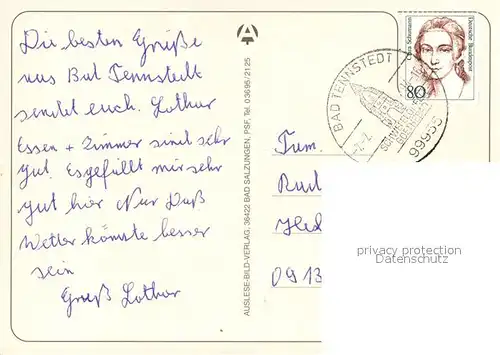 Die besten Grüße
aus Bad Tennstedt
sendet euch. Lothar
Essen + Zimmer sind sehr
gut. Es gefällt mir sehr
gut hier Nur Daß
Wetter könnte besser
sein
Gruß Lothar
AUSLESE-BILD-VERLAG, 36422 BAD SALZUNGEN, PSF, Tel. 03695/2125
Clara Schumann
Deutsche Bundespost
80
BAD TENNSTEDT 1
99955
Fam.
Rud
091
privacy protection
Datenschutz